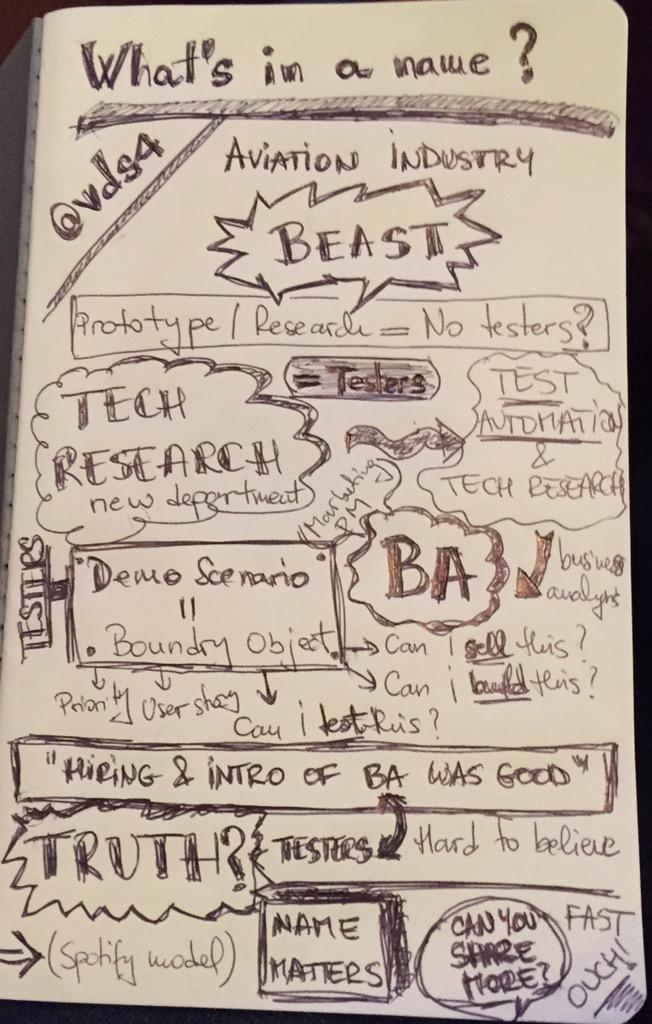 What's in a name?
@vds4
AVIATION INDUSTRY
BEAST
Prototype / Research = No testers?
= Testers
TECH
RESEARCH
new department
TEST
AUTOMATION
&
TECH RESEARCH
Marketing
PM
BA
business
analyns
TESTERS
• Demo Scenario •
=
• Boundry Object •
Can i sell this?
Can i build this?
Priority
User story
Can i test this?
"HIRING & INTRO OF BA WAS GOOD"
TRUTH?
TESTERS
Hard to believe
(Spotify model)
NAME
MATTERS
CAN YOU
SHARE
MORE?
FAST
OUCH!